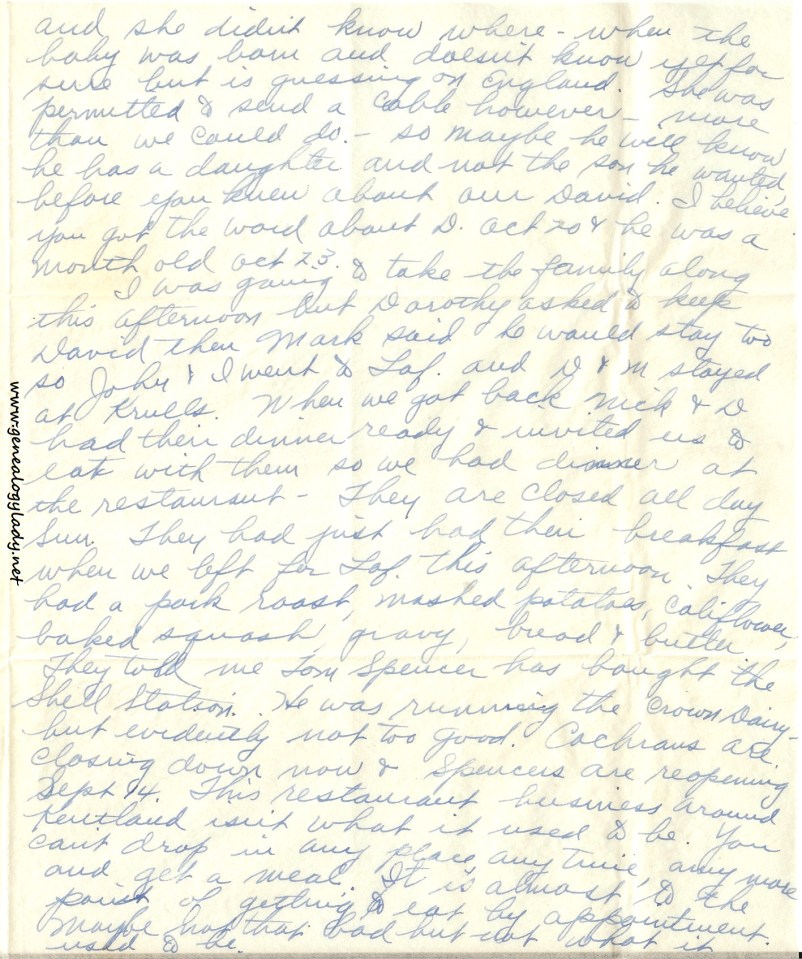 and she didn't know where - when the
baby was born and doesn't know yet for
sure but is guessing on England. She was
permitted to send a cable however - more
than we could do. - so maybe he will know
he has a daughter and not the son he wanted,
before you knew about our David. I believe
you got the word about D. Oct 20 & he was a
month old Oct 23.
I was going to take the family along
this afternoon but Dorothy asked to keep
David then Mark said he would stay too
so John & I went to Laf. and D & M stayed
at Krulls. When we got back Nick & D
had their dinner ready & invited us to
eat with them so we had dinner at
the restaurant - They are closed all day
Sun. They had just had their breakfast
when we left for Laf. this afternoon. They
had a pork roast, mashed potatoes, califlower,
baked squash, gravy, bread & butter
They told me Tom Spencer has bought the
Shell Station. He was running the Crown Dairy -
but evidently not too good. Cochrans are
closing down now & Spencers are reopening
Sept 14. This restaurant business around
Kentland isn't what it used to be. You
cant drop in any place, any time, any more
and get a meal. It is almost to the
point of getting to eat by appointment.
Maybe not that bad but not what it
used to be.
www.genealogylady.net